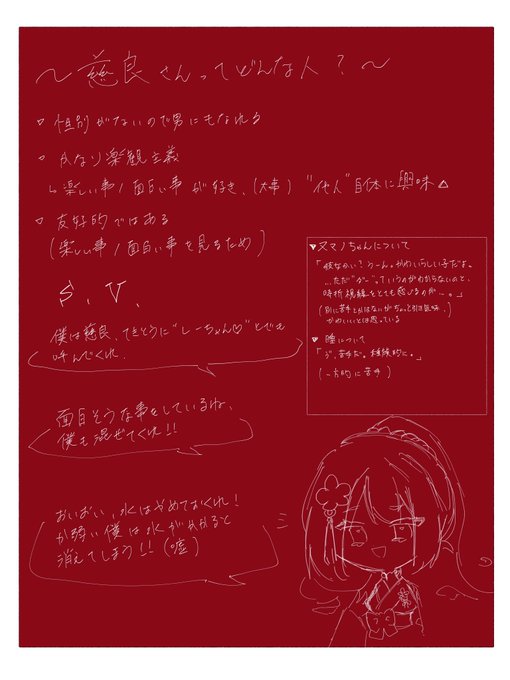 ～慈良さんってどんな人？～
▽ 性別がないので男にもなれる
▽ かなり楽観主義
↳ 楽しい事/面白い事が好き、(大事) "他人"自体に興味△
▽ 友好的ではある
(楽しい事/面白い事を見るため)
S.V.
僕は慈良、てきとうに"しーちゃん♡"とでも
呼んでくれ、
面白そうな事をしているね、
僕も混ぜてくれ!!
おいおい、水はやめておくれ!
か弱い僕は水がかかると
消えてしまう!! (嘘)
▼ヌマノちゃんについて
「彼なかい？うーん。かわいらしい子だよ。
…ただ"が—"っていうのがわからないので、
時折視線をとても感じるのが…。」
(別に苦手とかはないがちょっと引き気味。)
かわいいとは思っている
▼ 瞳について
「う゛、苦手だ。種族的に。」
(一方的に苦手)